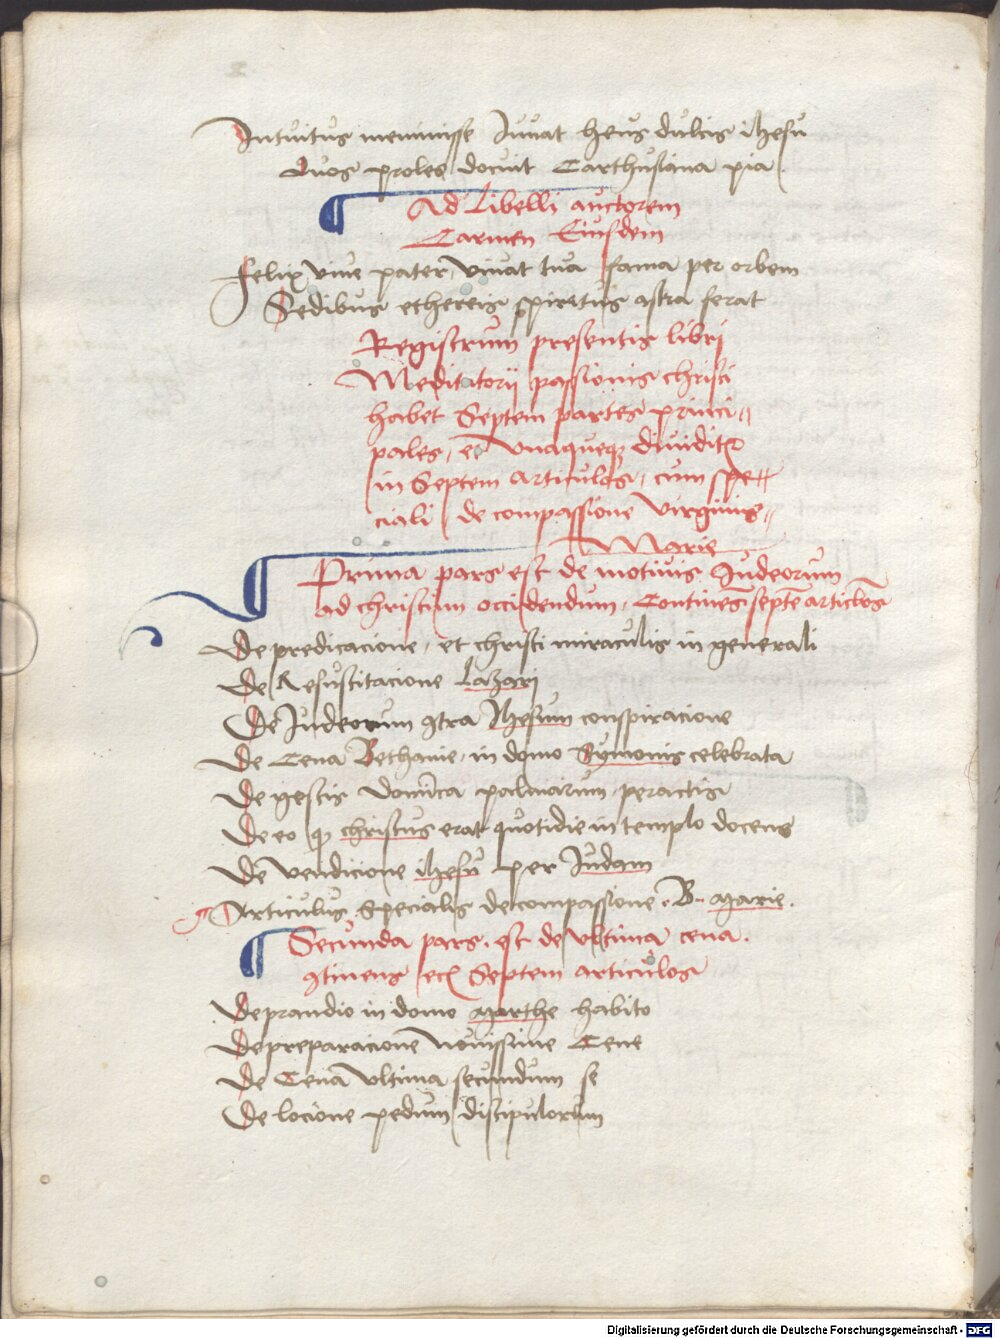 Intuitus meminisse Iuuat heus dulcis ihesu
Quos proles docuit Carthusiana pia.
Ad Libelli auctorem
Carmen Eiusdem
Felix viue pater, viuat tua fama per orbem
Sedibus ethereis spiritus astra ferat
Registrum presentis libri
Meditatorij passionis christi
habet Septem partes princi〃
pales, et vnaqueqꝫ diuiditꝛ
in Septem articulos, cum spe〃
ciali de compassione virginis〃
Marie
Prima pars est de motiuis Iudeorum
ad christum occidendum, Continens septē articlos
De predicacione, et christi miraculis in generali
De Resuscitacione lazari
De Iudeorum ꝯtra Ihesum conspiracione
De Cena Bethanie, in domo Symonis celebrata
De gestis domīca palmarum peractis
De eo qꝫ christus erat quotidie in templo docens
De vendicione ihesu per Iudam
Articulus Specialis de compassione . B. Marie.
Secunda pars. est de vltima cena.
ꝯtinens eciā Septem articulos
De prandio in domo Marthe habito
De preparacione nouissime Cene
De Cena vltima secundum se
De locione pedum discipulorum
Digitalisierung gefördert durch die Deutsche Forschungsgemeinschaft - DFG